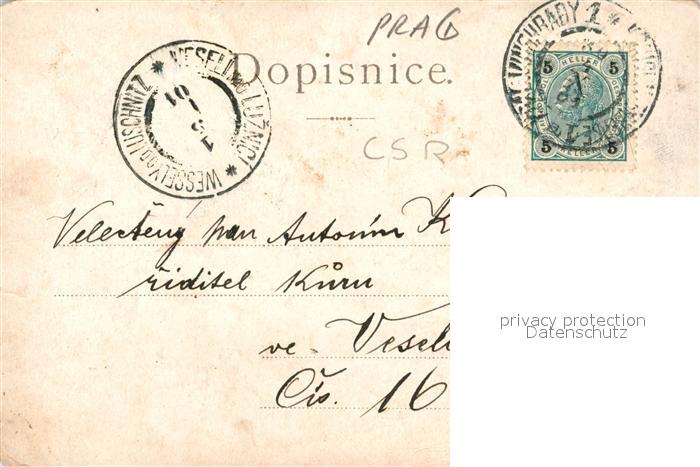 PRAG
Dopisnice.
VESELÍ n/ LUŽNICI * WESSELY a/d LUSCHNITZ *
CSR
5 HELLER 5
5 HELLER 5
Velectěný pan Antonín K
řiditel kůru
ve Vesel
Čís. 16
privacy protection
Datenschutz